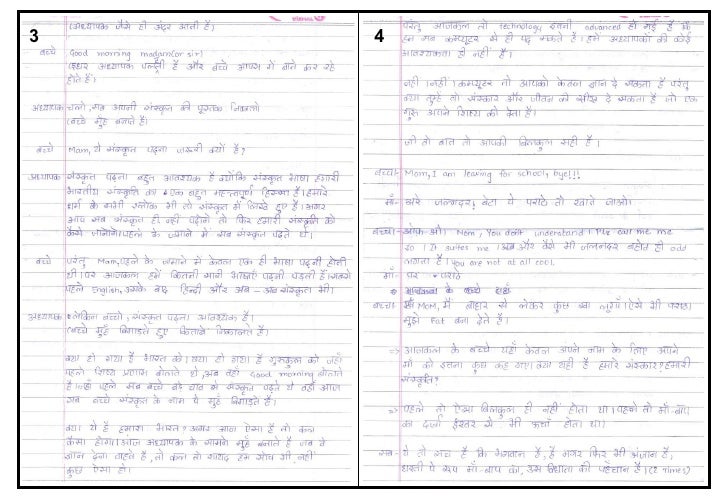 3
(अध्यापक जैसे ही अंदर आती है)
बच्चे Good morning madam(or sir)
अध्यापक पलटती है और बच्चे आपस में बाते कर रहे
होते हैं।
अध्यापक चलो, सब अपनी संस्कृत की पुस्तक निकालो
(बच्चे मुँह बनाते है)
बच्चे Mam, ये संस्कृत पढ़ना जरूरी क्यों है?
अध्यापक संस्कृत पढ़ना बहुत आवश्यक है क्योंकि संस्कृत भाषा हमारी
भारतीय संस्कृति का एक बहुत महत्त्वपूर्ण हिस्सा है। हमारे
धर्म के सभी श्लोक भी तो संस्कृत में लिखे हुए है। अगर
आप सब संस्कृत ही नहीं पढ़ोगे तो फिर हमारी संस्कृति को
कैसे जानोगे। पहले के जमाने में सब संस्कृत पढ़ते थे।
बच्चे परंतु Mam, पहले के जमाने में केवल एक ही भाषा पढ़नी होती
थी। पर आजकल हमें कितनी सारी भाषाएँ पढ़नी पड़ती है। सबसे
पहले English, उसके बाद हिन्दी और अब संस्कृत भी।
अध्यापक लेकिन बच्चों, संस्कृत पढ़ना आवश्यक है।
(बच्चे मुँह बिगाड़ते हुए किताबे निकालते है।
क्या हो गया है भारत को। क्या हो गया है गुरुकुल को जहाँ
पहले शिष्य प्रणाम बोलते थे, अब वहाँ Good morning बोलते
है। जहाँ पहले सब बच्चे बड़े चाव से संस्कृत पढ़ते थे वहाँ आज
सब बच्चे संस्कृत के नाम पे मुँह बिगाड़ते है।
क्या ये है हमारा भारत? अगर आज ऐसा है तो कल
कैसा होगा। आज अध्यापक के सामने मुँह बनाते है जब वे
ज्ञान देना चाहते है, तो कल तो शायद हम सोच भी नहीं
कुछ ऐसा हो।
4
परंतु आजकल तो technology इतनी advanced हो गई है कि
हम सब कम्प्यूटर से ही पढ़ सकते है। हमे अध्यापको की कोई
आवश्यकता ही नहीं है।
नहीं। नहीं। कम्प्यूटर तो आपको केवल ज्ञान दे सकता है परंतु
क्या तुम्हें वो संस्कार और जीवन की सीख दे सकता है जो एक
गुरू अपने शिष्य को देता है।
जी हाँ बात तो आपकी बिलकुल सही है।
बच्चा- Mom, I am leaving for school, bye!!!
माँ- अरे जलनदर! बेटा ये पराठे तो खाते जाओ।
बच्चा- ओफ-ओ! Mom, You don't understand! Plz call me
so! It suites me। अब और वैसे भी जलनदर बहोत ही odd
लगता है। You are not at all cool.
माँ पर पराठे
बच्चा Mom, मैं बाहर से लेकर कुछ खा लूगाँ। ऐसे भी पराठा
मुझे Fat बना देते है।
⇒ आजकल के बच्चे यहाँ केवल अपने नाम के लिए अपने
माँ को इतना कुछ कह गए। क्या यही है हमारे संस्कार? हमारी
संस्कृति?
⇒ पहले तो ऐसा बिलकुल ही नहीं होता था। पहले तो माँ-बाप
का दर्जा ईश्वर से भी ऊँचा होता था।
सब- ये तो सच है कि भगवान है, है मगर फिर भी अंजान है,
धरती पे रूप माँ-बाप का, उस विधाता की पहचान है। (2 Times)